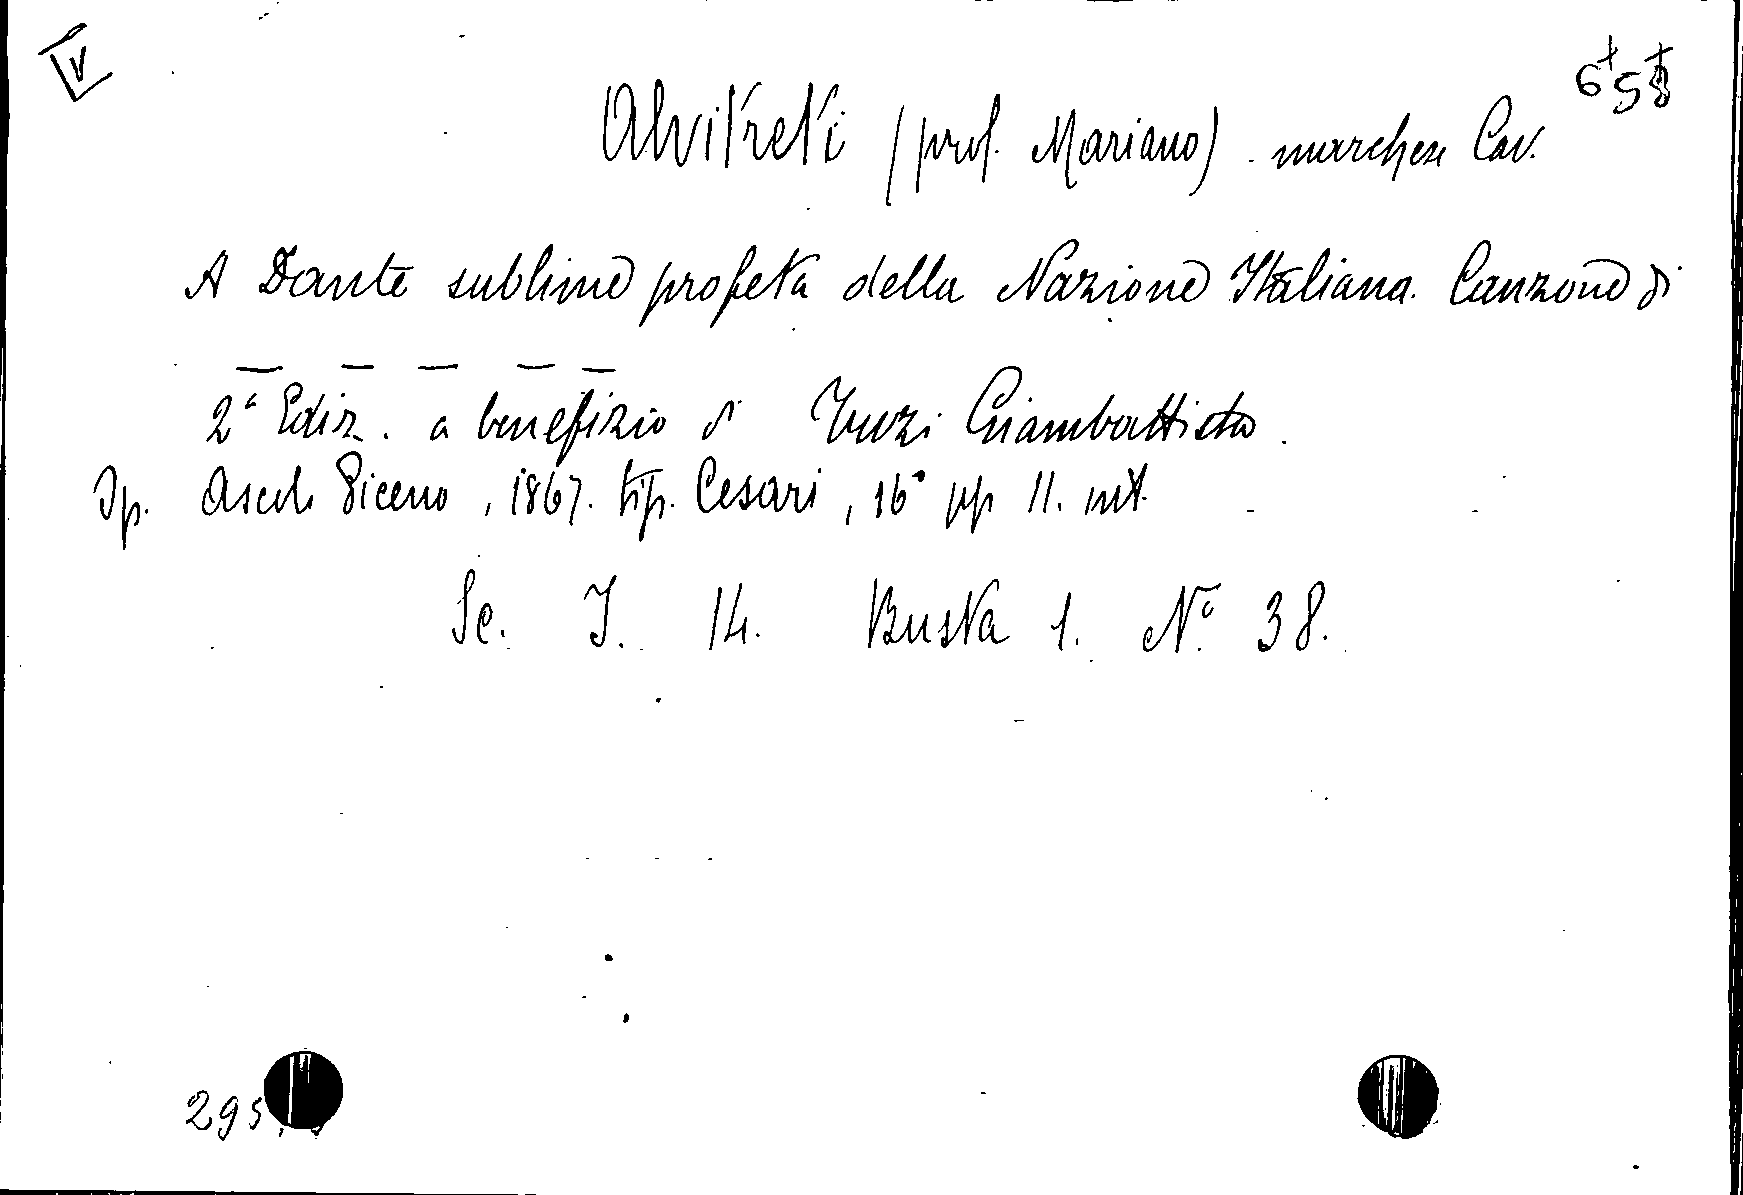 V
658
Alvitreti (prof. Mariano) marchese Cav.
A Dante sublime profeta della Nazione Italiana. Canzone di
— — — — —
2ª Ediz. a benefizio di Giambattista
Op. Ascoli Piceno, 1867. tip. Cesari, 16° pp 11. int.
Sc. I. 14. Busta 1. N° 38.
295